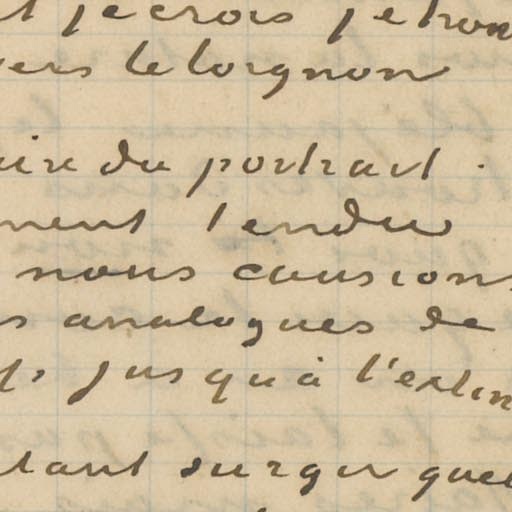 je crois je trou
vers le lorgnon
du portrait.
ment tendu
nous causions
s analogues de
jusqu'à l'extin
tant surgir quel